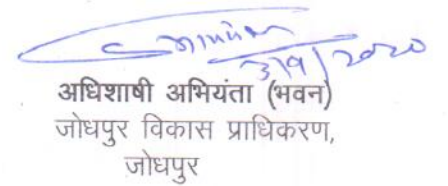 3/9/2020
अधिशाषी अभियंता (भवन)
जोधपुर विकास प्राधिकरण,
जोधपुर